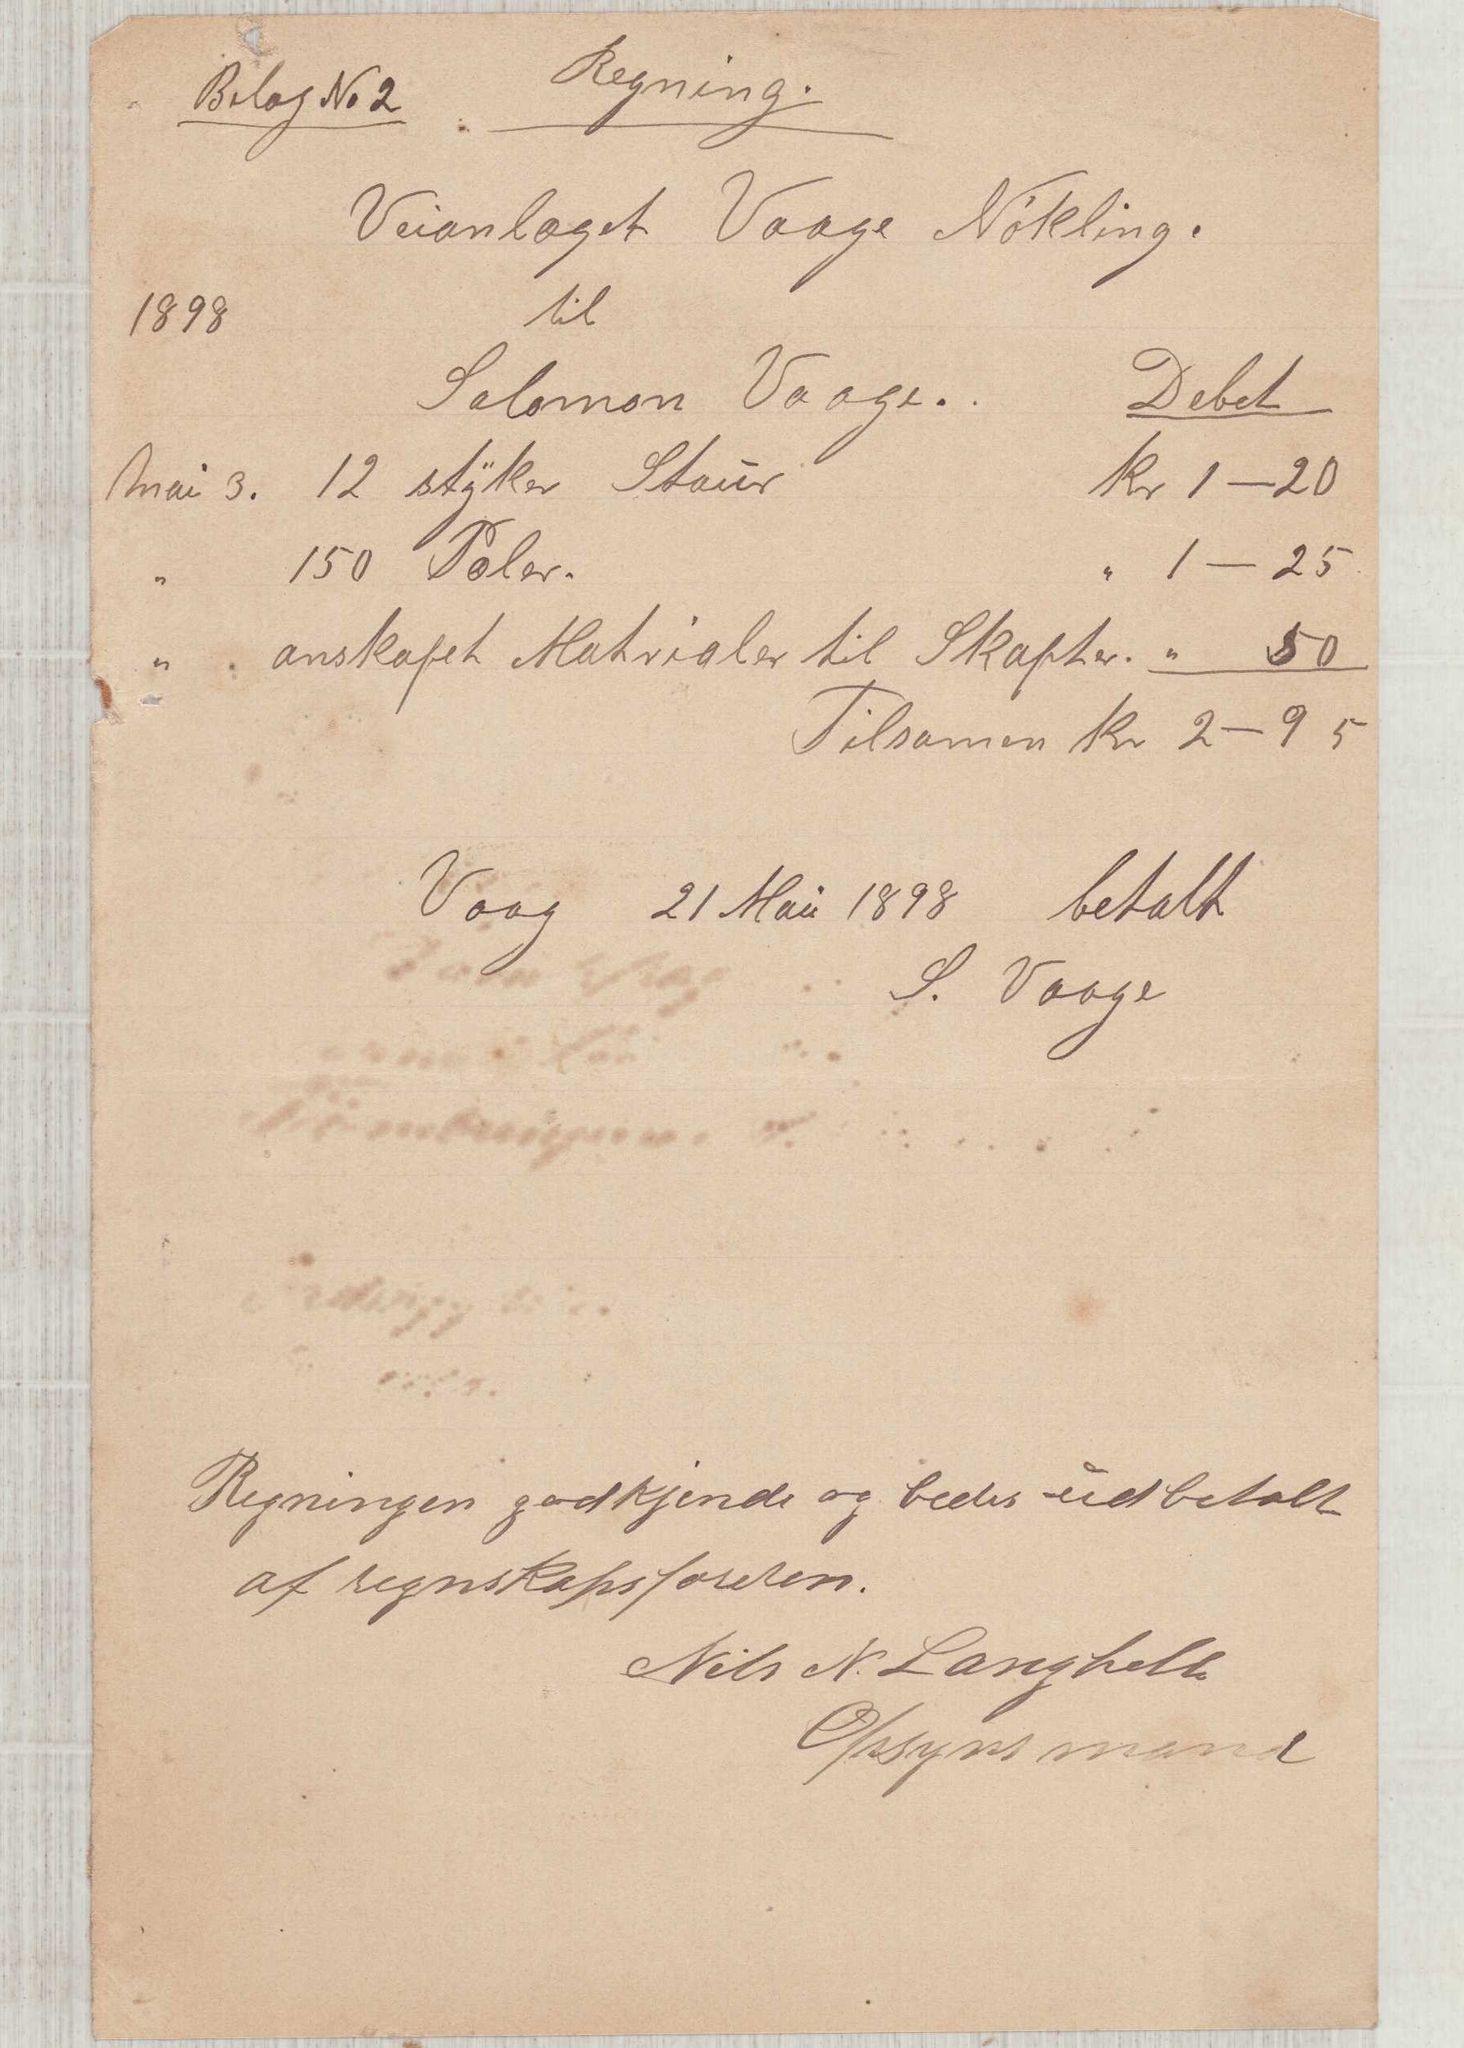 Bilag No 2 Regning.
Veianlæget Vaage Nökling.
1898 til
Salomon Vaage. Debet
Mai 3. 12 styker Staur kr 1—20
" 150 Pæler. " 1—25
" anskafet Matrialer til Skafter. " 50
Tilsamen kr 2—95
Vaag 21 Mai 1898 betalt
S. Vaage
Regningen godkjendes og bedes udbetalt
af regnskapsføreren.
Nils N. Langhelle
Opsynsmand